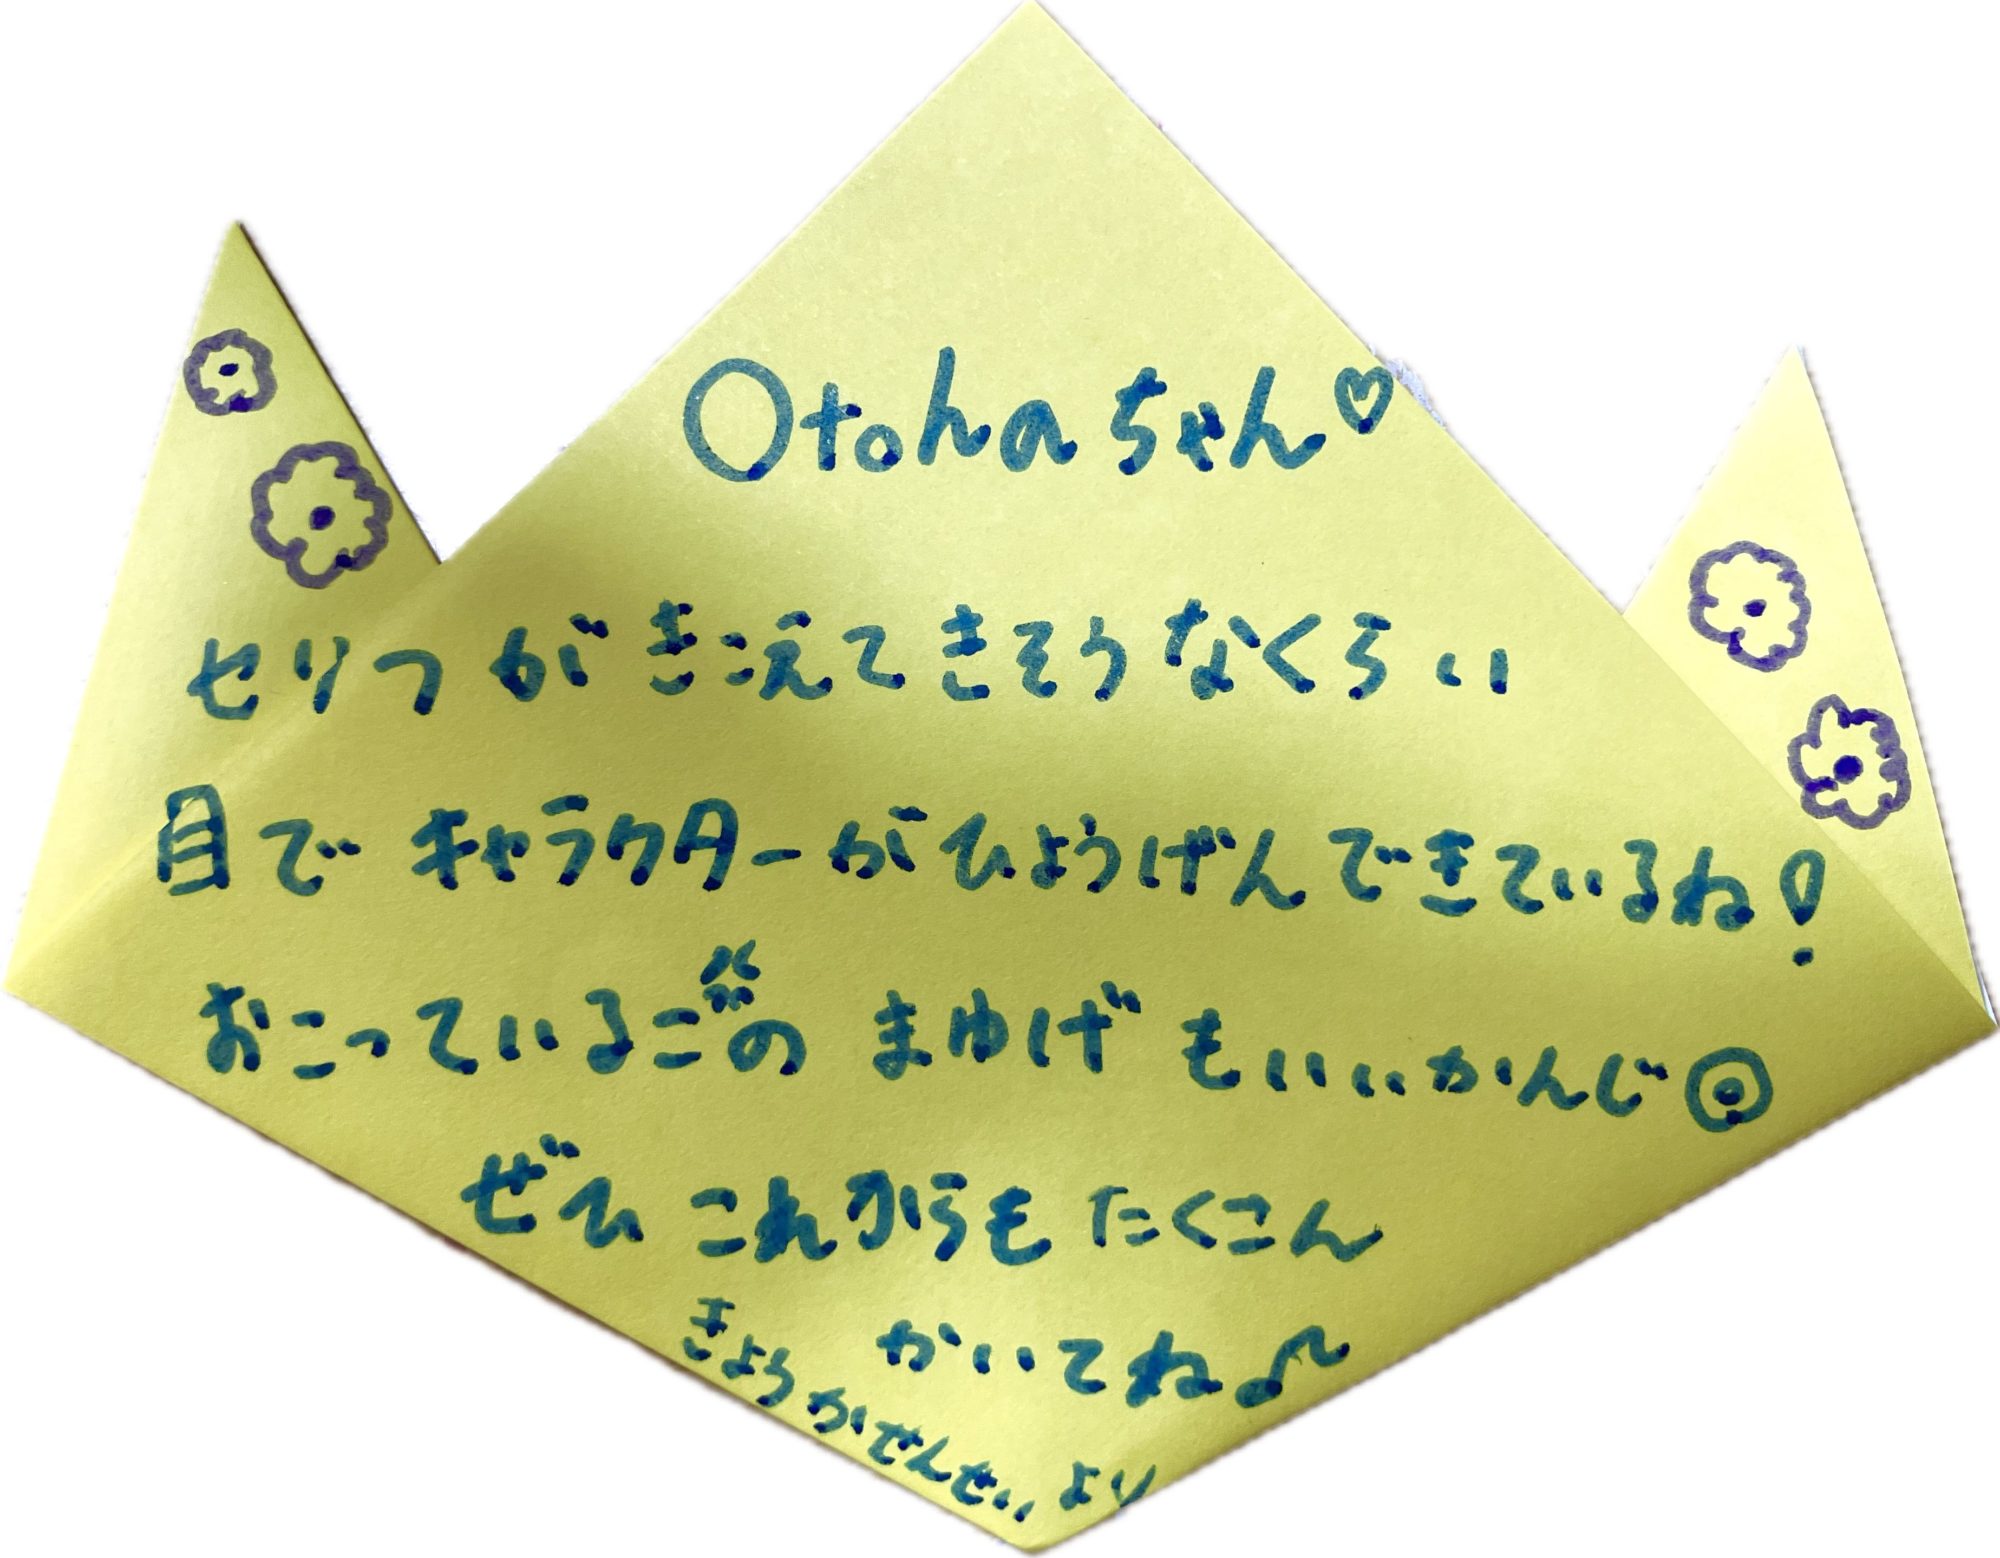 Otohaちゃん♡
セリフがきこえてきそうなくらい
目でキャラクターがひょうげんできているね!
おこっているこの まゆげもいいかんじ◎
ぜひ これからも たくさん
かいてね♪
きょうかせんせいより